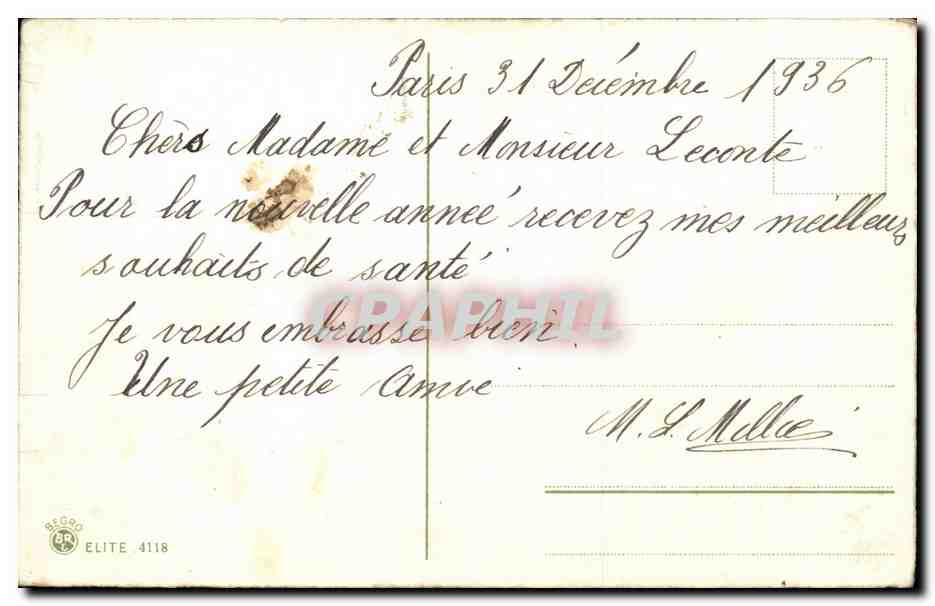 Paris 31 Décémbre 1936
Chèrs Madame et Monsieur Leconte
Pour la nouvelle anneé recevez mes meilleurs
souhaits de santé
CRAPHIL
Je vous embrasse bien.
Une petite Amie
M. L.
BEGRO
BR
ELITE 4118